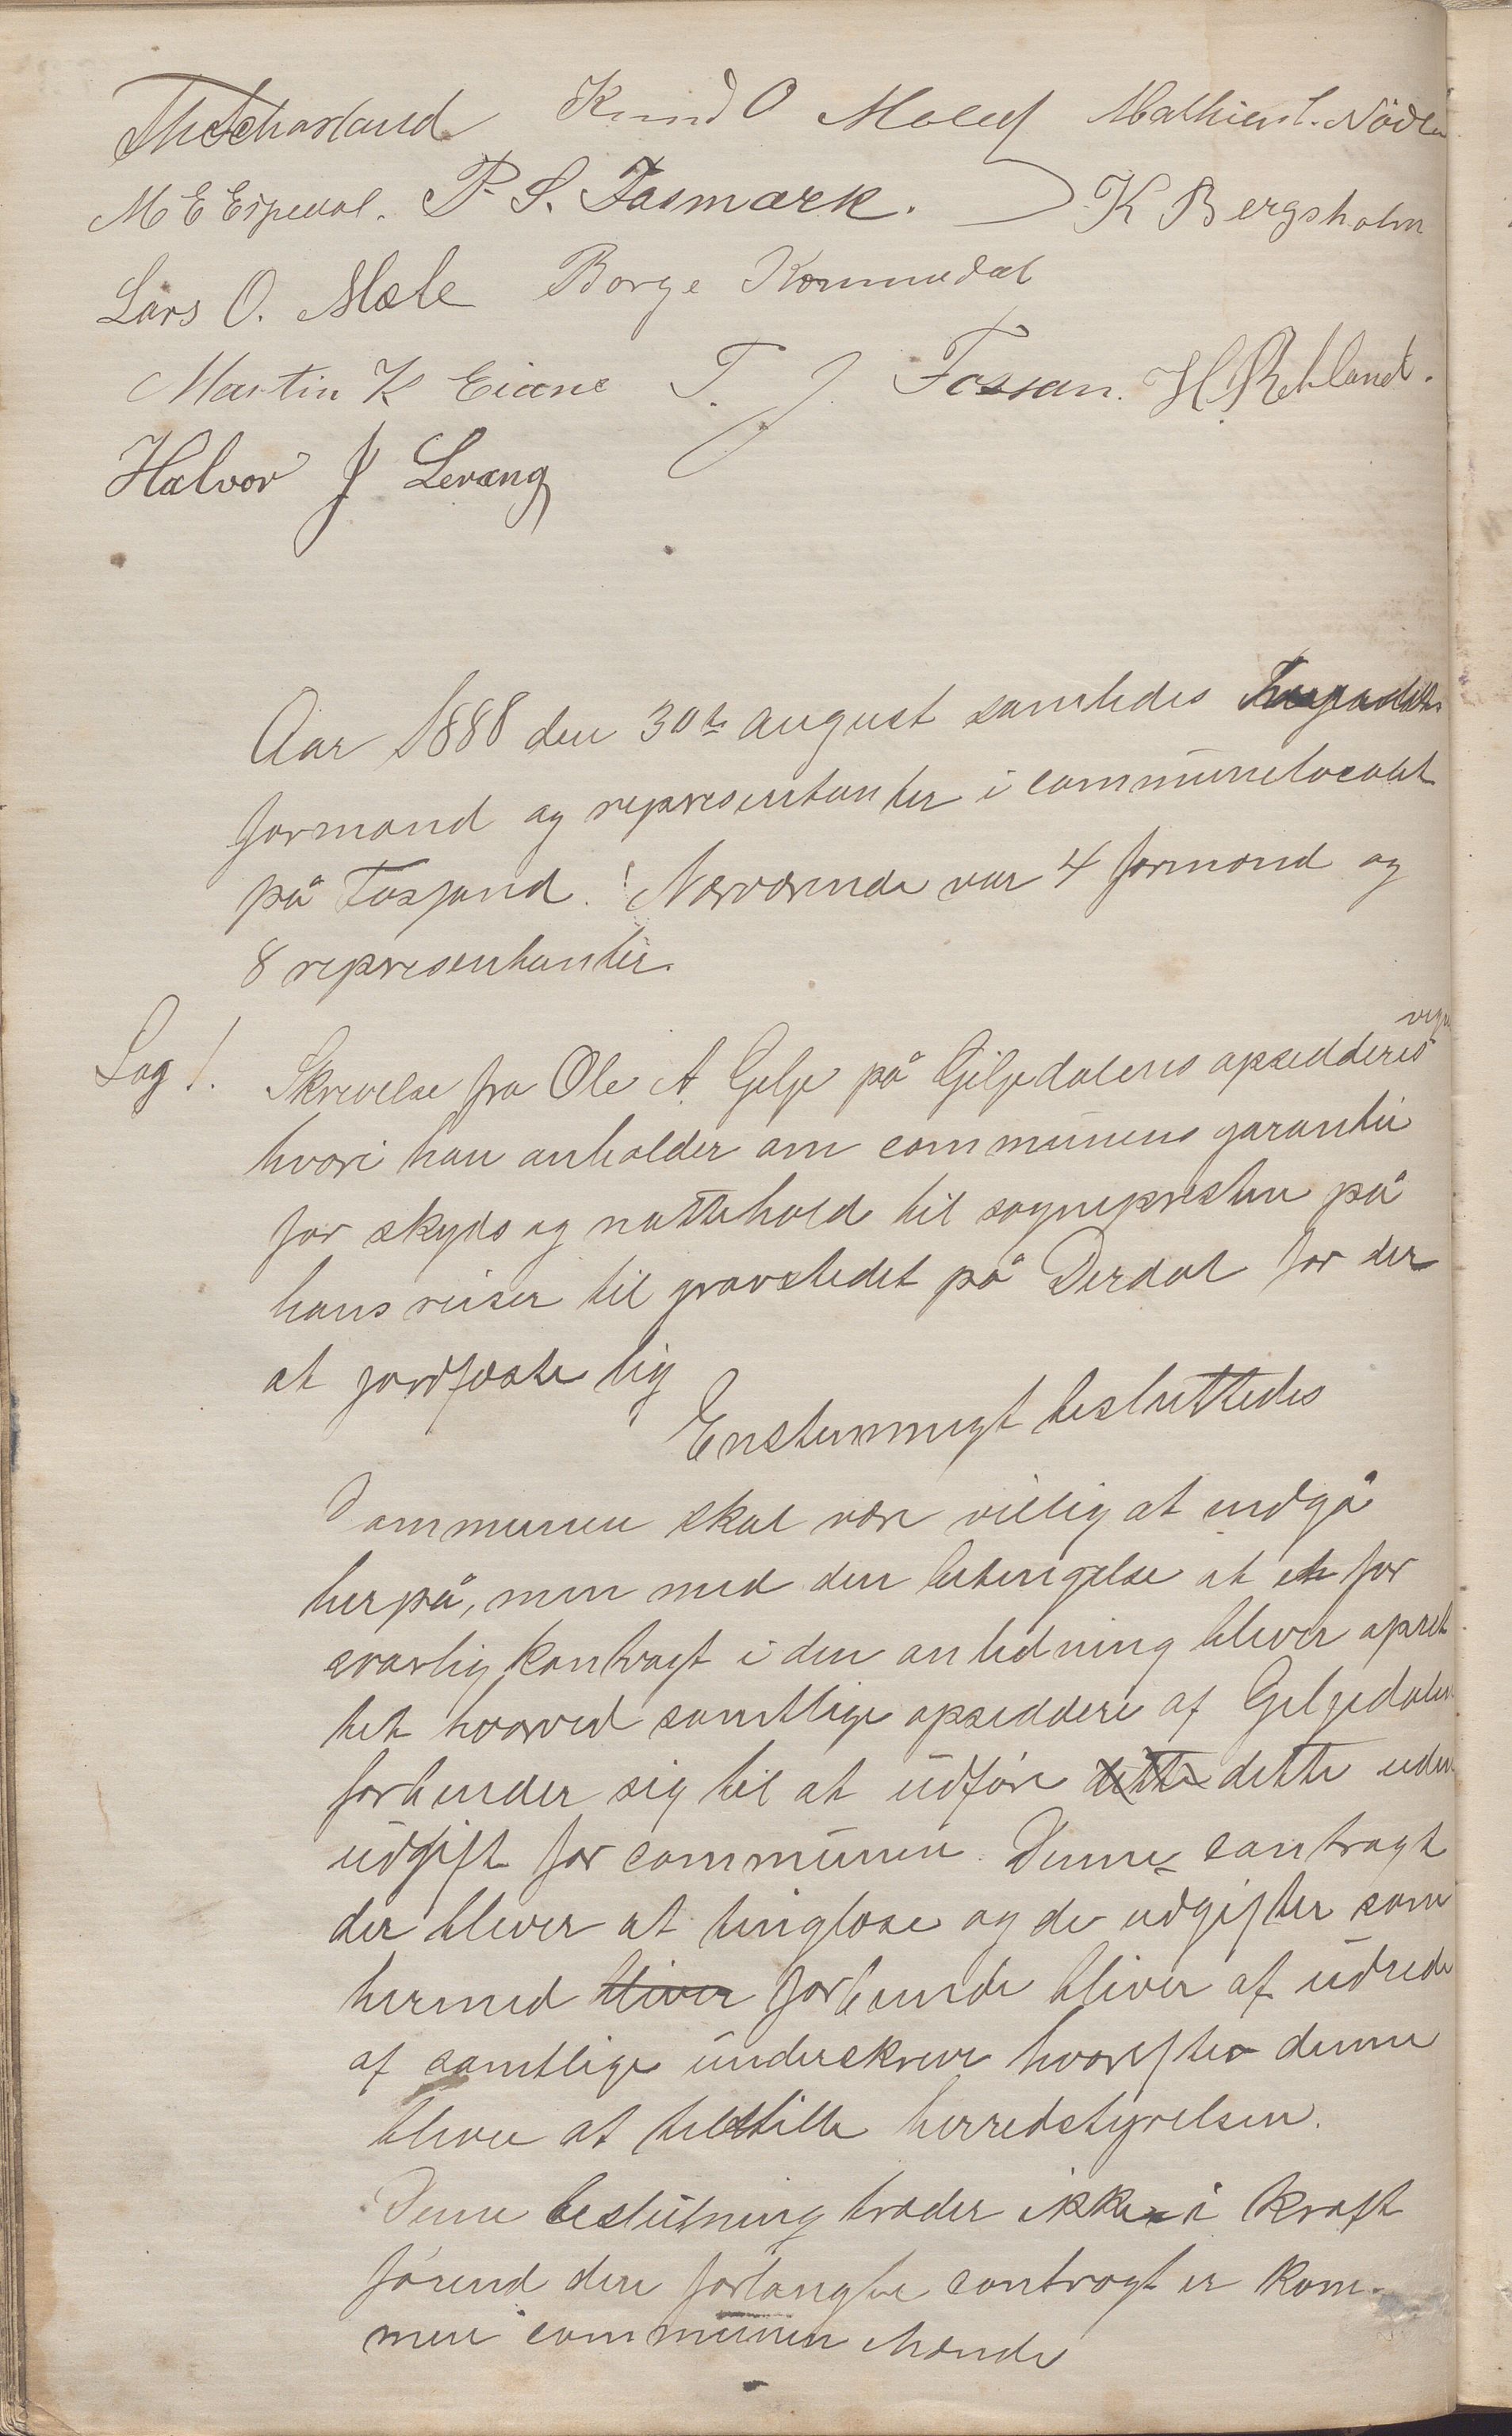 Knud O Molaug Mathias T. Nödl
M E Espedal. P. S. Fasmark. K Bergsholm
Lars O. Mæle Borge Kommedal
Martin K Eiane T. J. Fossan. H. Rekland.
Halvor J Levang
Aar 1888 den 30te august samledes
formænd og representanter i communelocalet
på Fosjand. Nærværende var 4 formænd og
8 representanter.
Sag 1. Skrivelse fra Ole A. Gilje på Giljedalens opsidderes vegn
hvori han anholder om communens garanti
for skyds og nattehold til sognepresten på
hans reiser til gravstedet på Dirdal for der
at jordfæste lig
Enstemmigt besluttedes
Communen skal være villig at indgå
herpå, men med den betingelse at en for
svarlig kontragt i den anledning bliver opret
tet hvorved samtlige opsiddere af Giljedalen
forbinder sig til at udføre dette dette uden
udgift for communen. Denne contragt
der bliver at tinglæse og de udgifter som
hermed bliver forbunde bliver at udrede
af samtlige underskrive hvorefter denne
bliver at tilstille herredstyrelsen.
Denne beslutning træder ikke i kraft
førend den forlangte contragt er kom-
men i communen hænde